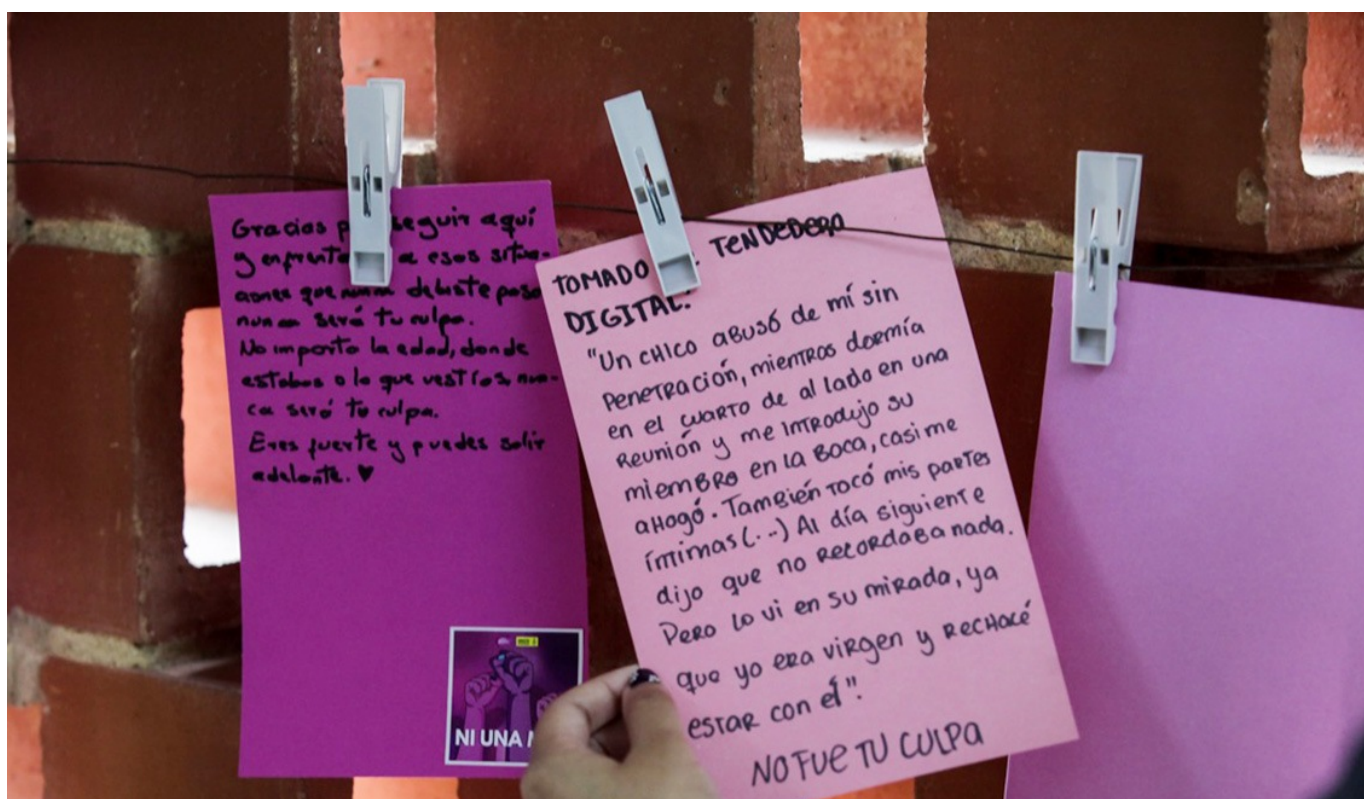 Gracias p seguir aquí
y enfrenta a esas situa-
ciones que nunca debiste pasar
nunca será tu culpa.
No importa la edad, donde
estabas o lo que vestías, nun-
ca será tu culpa.
Eres fuerte y puedes salir
adelante. ♥
NI UNA
TOMADO TENDEDERO
DIGITAL:
"Un CHICO aBUSÓ de mí sin
PENETRACIÓN, mientras dormía
en el cuarto de al lado en una
Reunión y me introdujo su
miembro en la Boca, casi me
aHogó. También tocó mis partes
íntimas (...) Al día siguiente
dijo que no Recordaba nada.
Pero lo vi en su mirada, ya
que yo era virgen y Rechacé
estar con él".
NO FUE TU CULPA